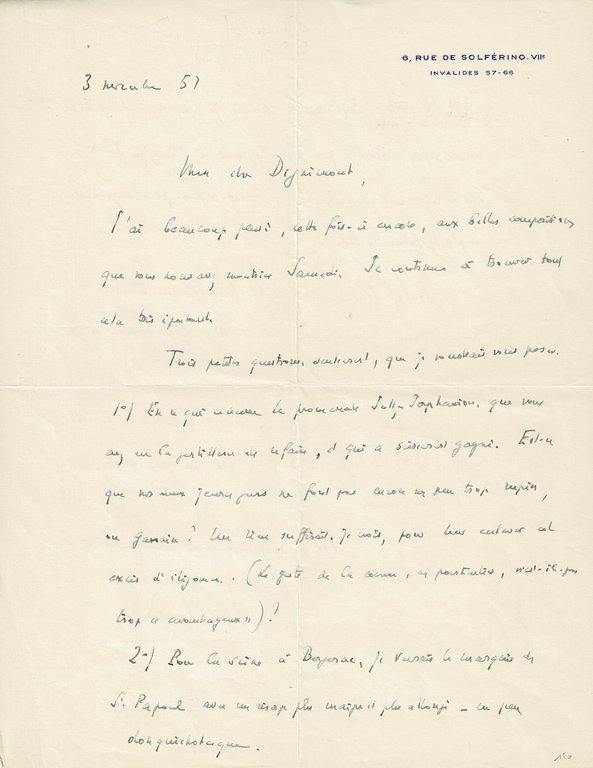 6, RUE DE SOLFÉRINO. VIIᵉ
INVALIDES 57-66
3 novembre 51
Mon cher Dignimont,
J'ai beaucoup pensé, cette fois-ci encore, aux belles compositions
que vous nous avez montrées Samedi. Je continue à trouver tout
cela très épatant.
Trois petites questions, seulement, que je voudrais vous poser.
1º) En ce qui concerne la promenade Jallez-Jerphanion, que vous
avez eu la gentillesse de refaire, et qui a sûrement gagné. Est-ce
que nos deux jeunes gens ne font pas encore un peu trop
ou ? Un rien suffirait, je crois, pour leur enlever cet
excès d'élégance. (Le geste de la canne, en particulier, n'est-il pas
trop « avantageux ») ?
2º) Pour la scène à Bergerac, je verrais le marquis de
St. Papoul avec un visage plus maigre et plus allongé - un peu
donquichotesque.
150